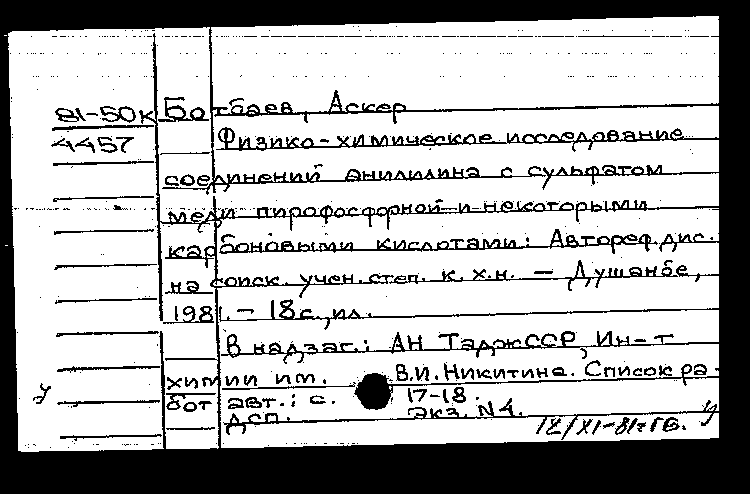 81-50к Ботбаев, Аскер
4457 Физико-химическое исследование
соединений анилилина с сульфатом
меди пирофосфорной и некоторыми
карбоновыми кислотами: Автореф. дис.
на соиск. учен. степ. к. х.н. — Душанбе,
1981. — 18 с., ил.
В надзаг.: АН ТаджССР, Ин-т
химии им. В.И. Никитина. Список ра-
бот авт.: с. 17-18.
ДСП. Экз. N4.
12/XI-81г ГБ. У
У